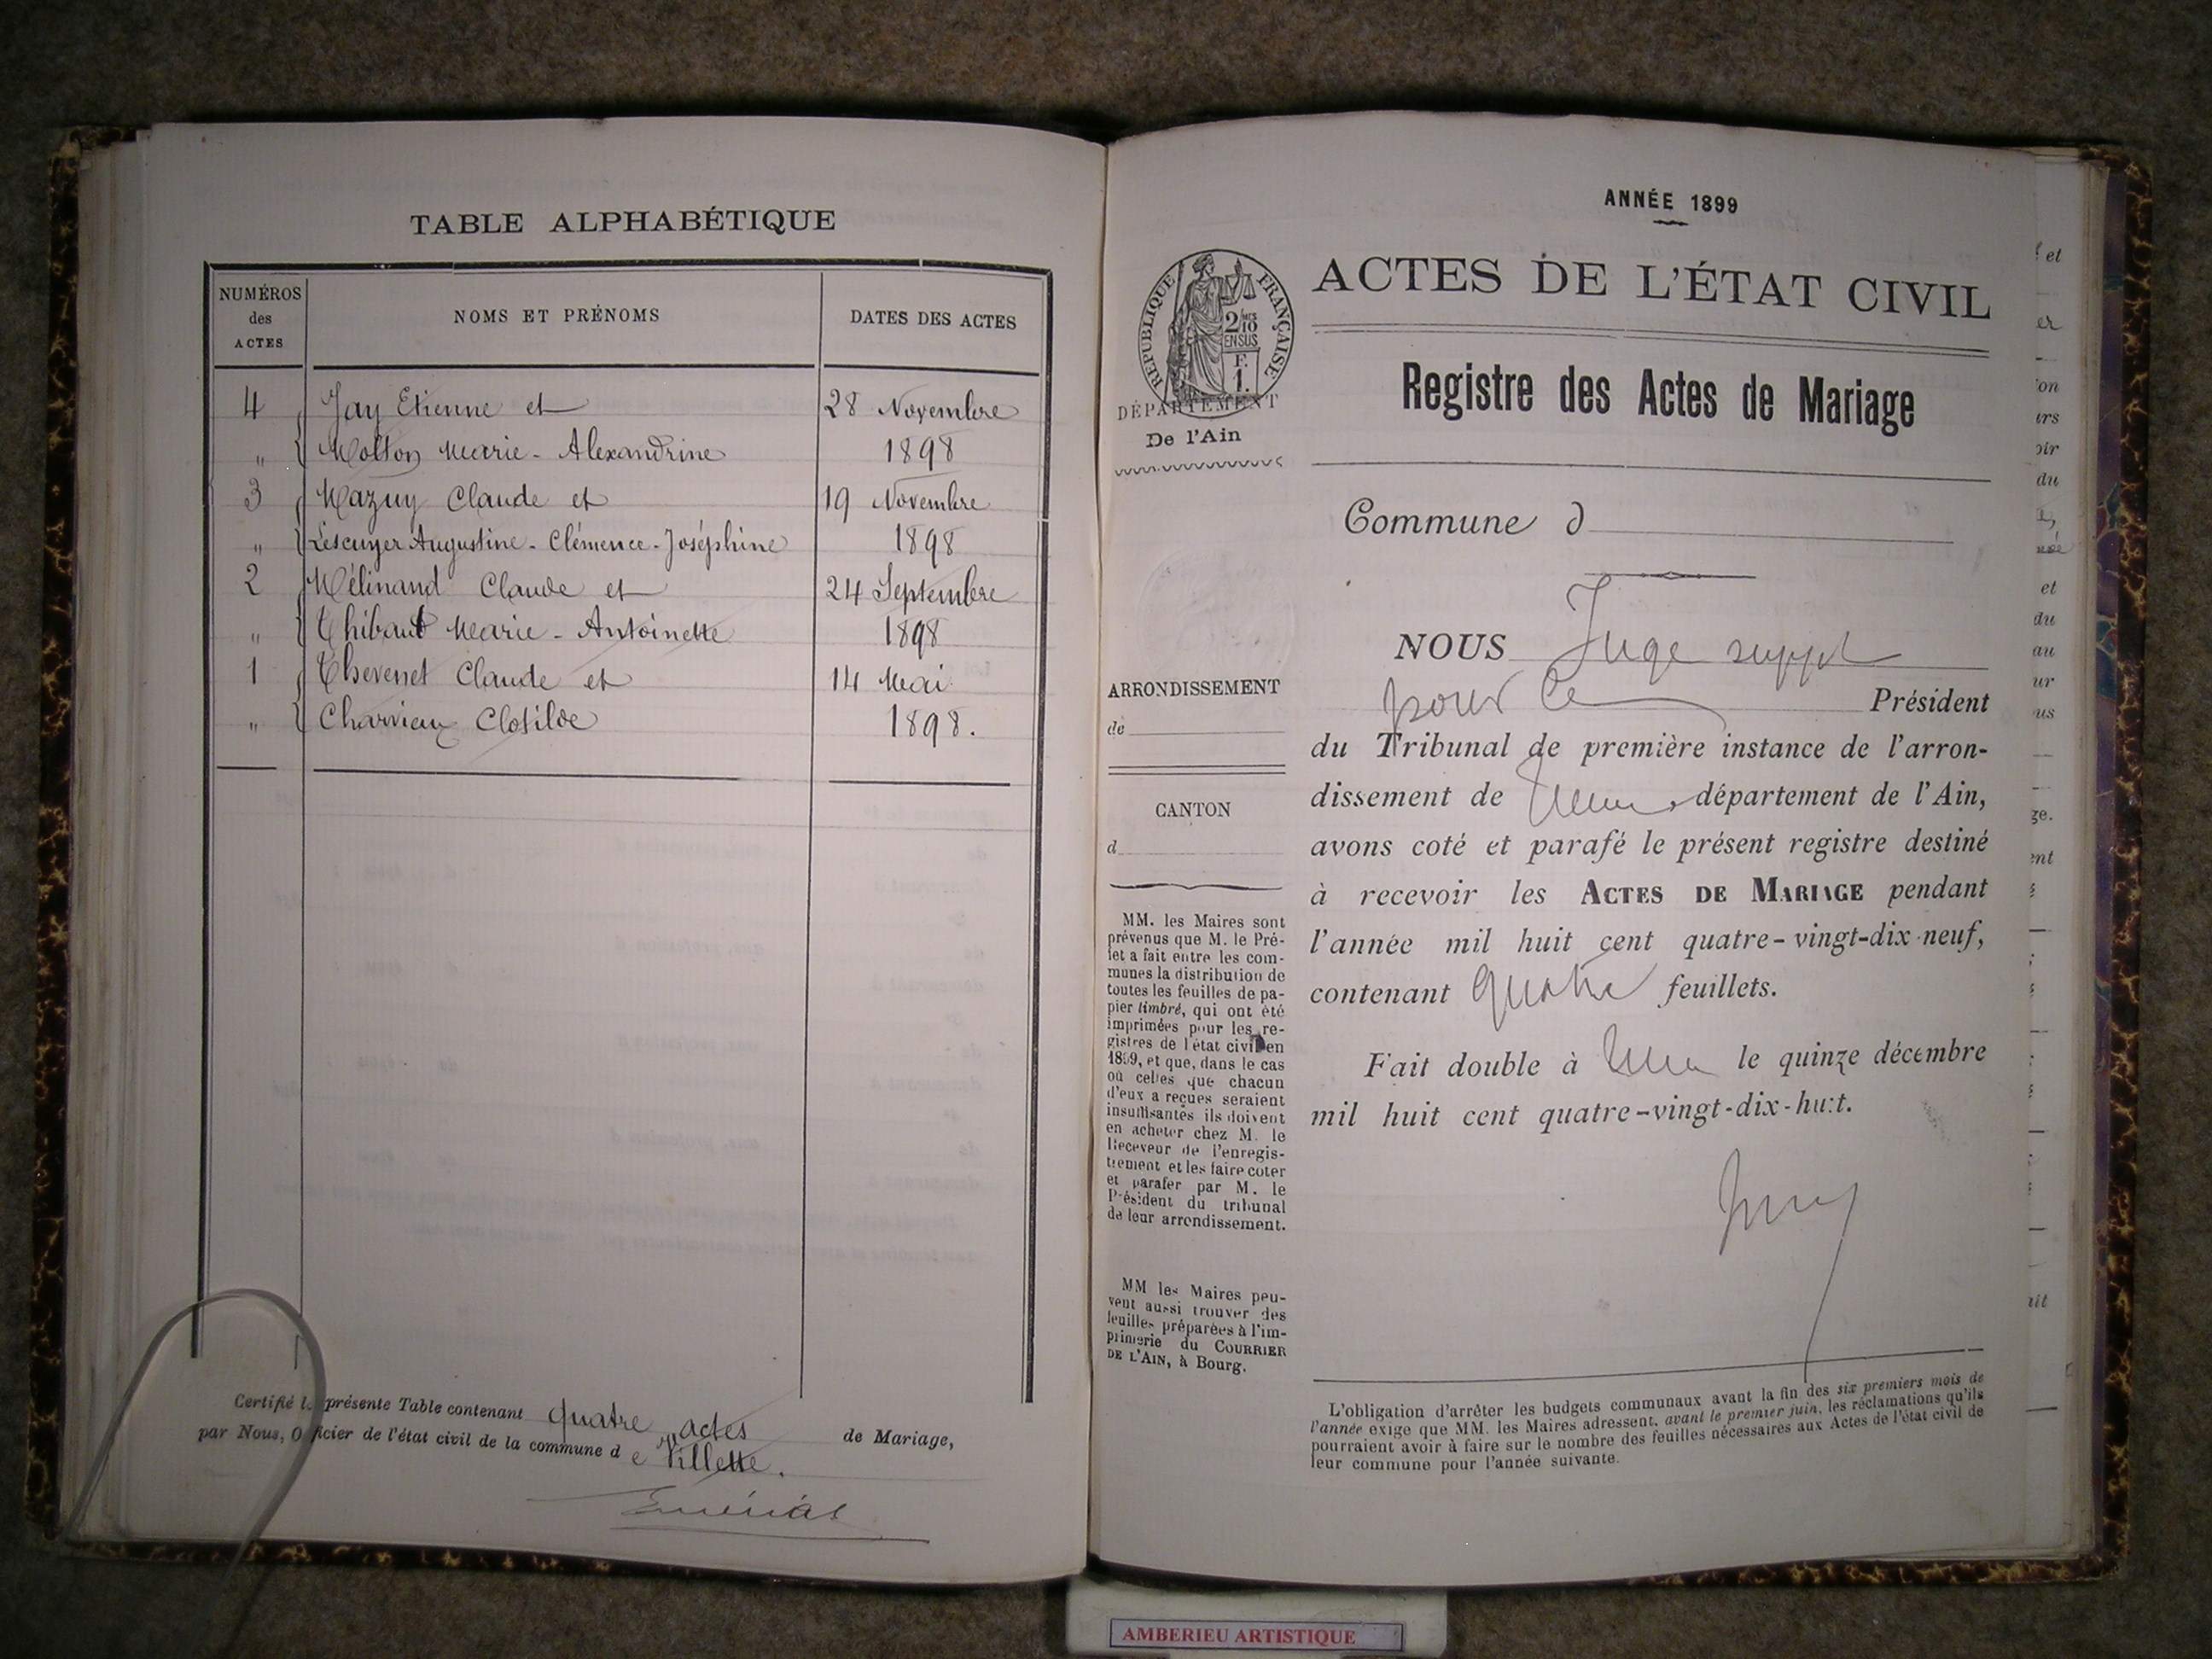 TABLE ALPHABÉTIQUE
NUMÉROS
des
ACTES
NOMS ET PRÉNOMS
DATES DES ACTES
4 Jay Etienne et 28 Novembre
" Molton Marie - Alexandrine 1898
3 Mazuy Claude et 19 Novembre
" Lescuyer Augustine - Clémence - Joséphine 1898
2 Mélinand Claude et 24 Septembre
" Thibaut Marie - Antoinette 1898
1 Thevenet Claude et 14 Mai
" Charvieux Clotilde 1898.
Certifié l présente Table contenant quatre actes de Mariage,
par Nous, O ficier de l'état civil de la commune d e Villette.
ANNÉE 1899
ACTES DE L'ÉTAT CIVIL
RÉPUBLIQUE FRANÇAISE
2/10
EN SUS
F.
1.
DÉPARTEMENT
De l'Ain
Registre des Actes de Mariage
Commune d
NOUS Juge suppt
pour le Président
du Tribunal de première instance de l'arron-
dissement de département de l'Ain,
avons coté et parafé le présent registre destiné
à recevoir les ACTES DE MARIAGE pendant
l'année mil huit cent quatre-vingt-dix-neuf,
contenant quatre feuillets.
Fait double à le quinze décembre
mil huit cent quatre-vingt-dix-huit.
ARRONDISSEMENT
de
CANTON
d
MM. les Maires sont
prévenus que M. le Pré-
fet a fait entre les com-
munes la distribution de
toutes les feuilles de pa-
pier timbré, qui ont été
imprimées pour les re-
gistres de l'état civil en
1899, et que, dans le cas
où celles que chacun
d'eux a reçues seraient
insuffisantes ils doivent
en acheter chez M. le
Receveur de l'enregis-
trement et les faire coter
et parafer par M. le
Président du tribunal
de leur arrondissement.
MM les Maires peu-
vent aussi trouver des
feuilles préparées à l'im-
primerie du COURRIER
DE L'AIN, à Bourg.
L'obligation d'arrêter les budgets communaux avant la fin des six premiers mois de
l'année exige que MM. les Maires adressent, avant le premier juin, les réclamations qu'ils
pourraient avoir à faire sur le nombre des feuilles nécessaires aux Actes de l'état civil de
leur commune pour l'année suivante.
AMBERIEU ARTISTIQUE